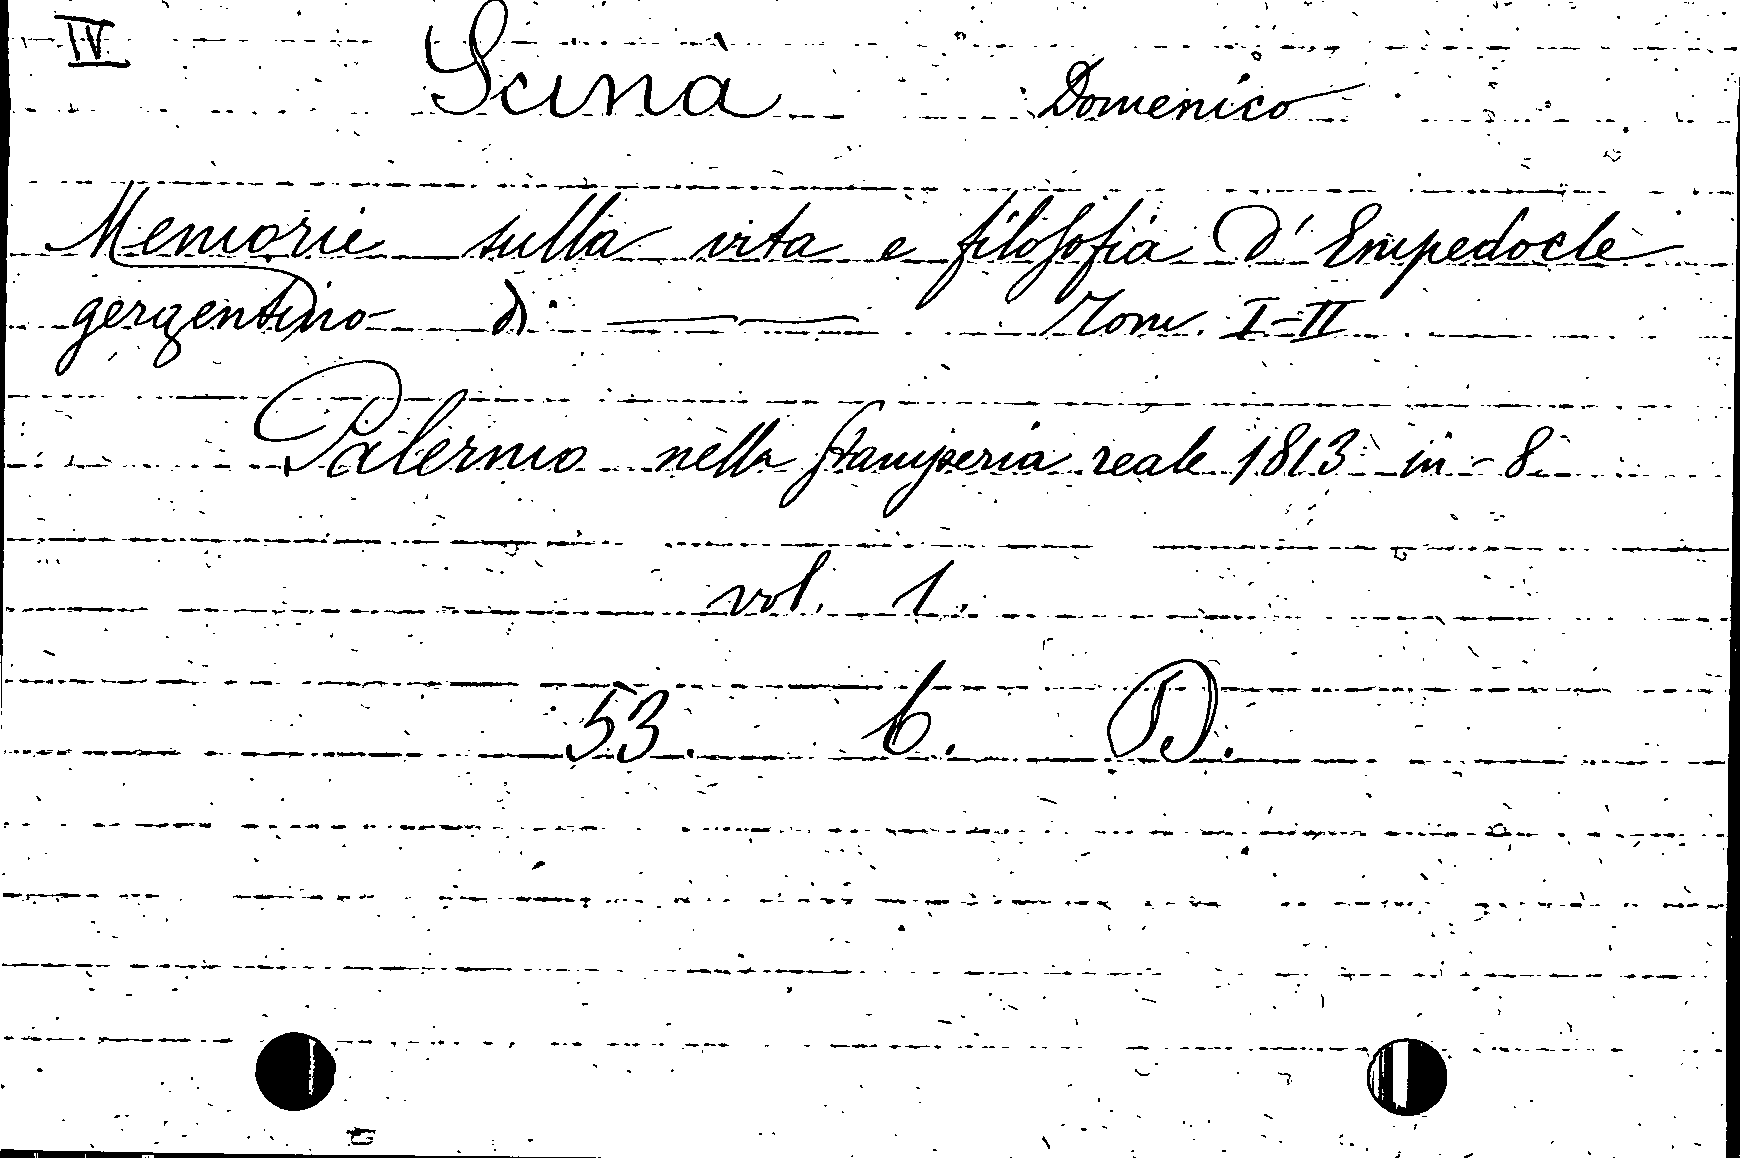 IV Scinà Domenico
Memorie sulla vita e filosofia d'Empedocle
gergentino di ——— Tom. I-II
Palermo nella stamperia reale 1813 in-8.
vol. 1.
53. 6. D.